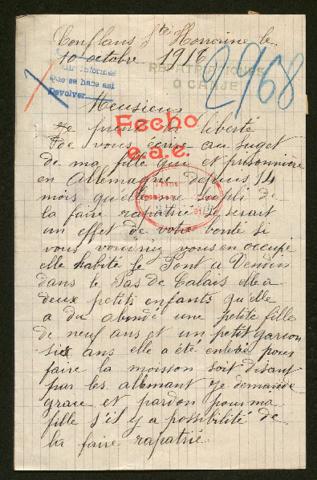 Conflans Ste Honorine le
10 octobre 1916
2968
que se hace así
Devolver
O CANJE
Monsieur
Fecho
e.a.c.
Je prend la liberté
De vous écrire au suget
de ma fille qui et prisonnière
en Allemagne depuis 14
mois
la faire rapatrié se serait
un effet de votre bonté si
vous vouliriez vous en occupé
elle habité le Pont a Vendin
dans le Pas de Calais elle a
deux petits enfants qu'elle
a du abandé une petite fille
de neuf ans et un petit garcon
six ans elle a été enlevé pour
faire la moisson soit disant
par les allemant je demande
grace et pardon pour ma
fille s'il y a possibilité de
la faire rapatrié